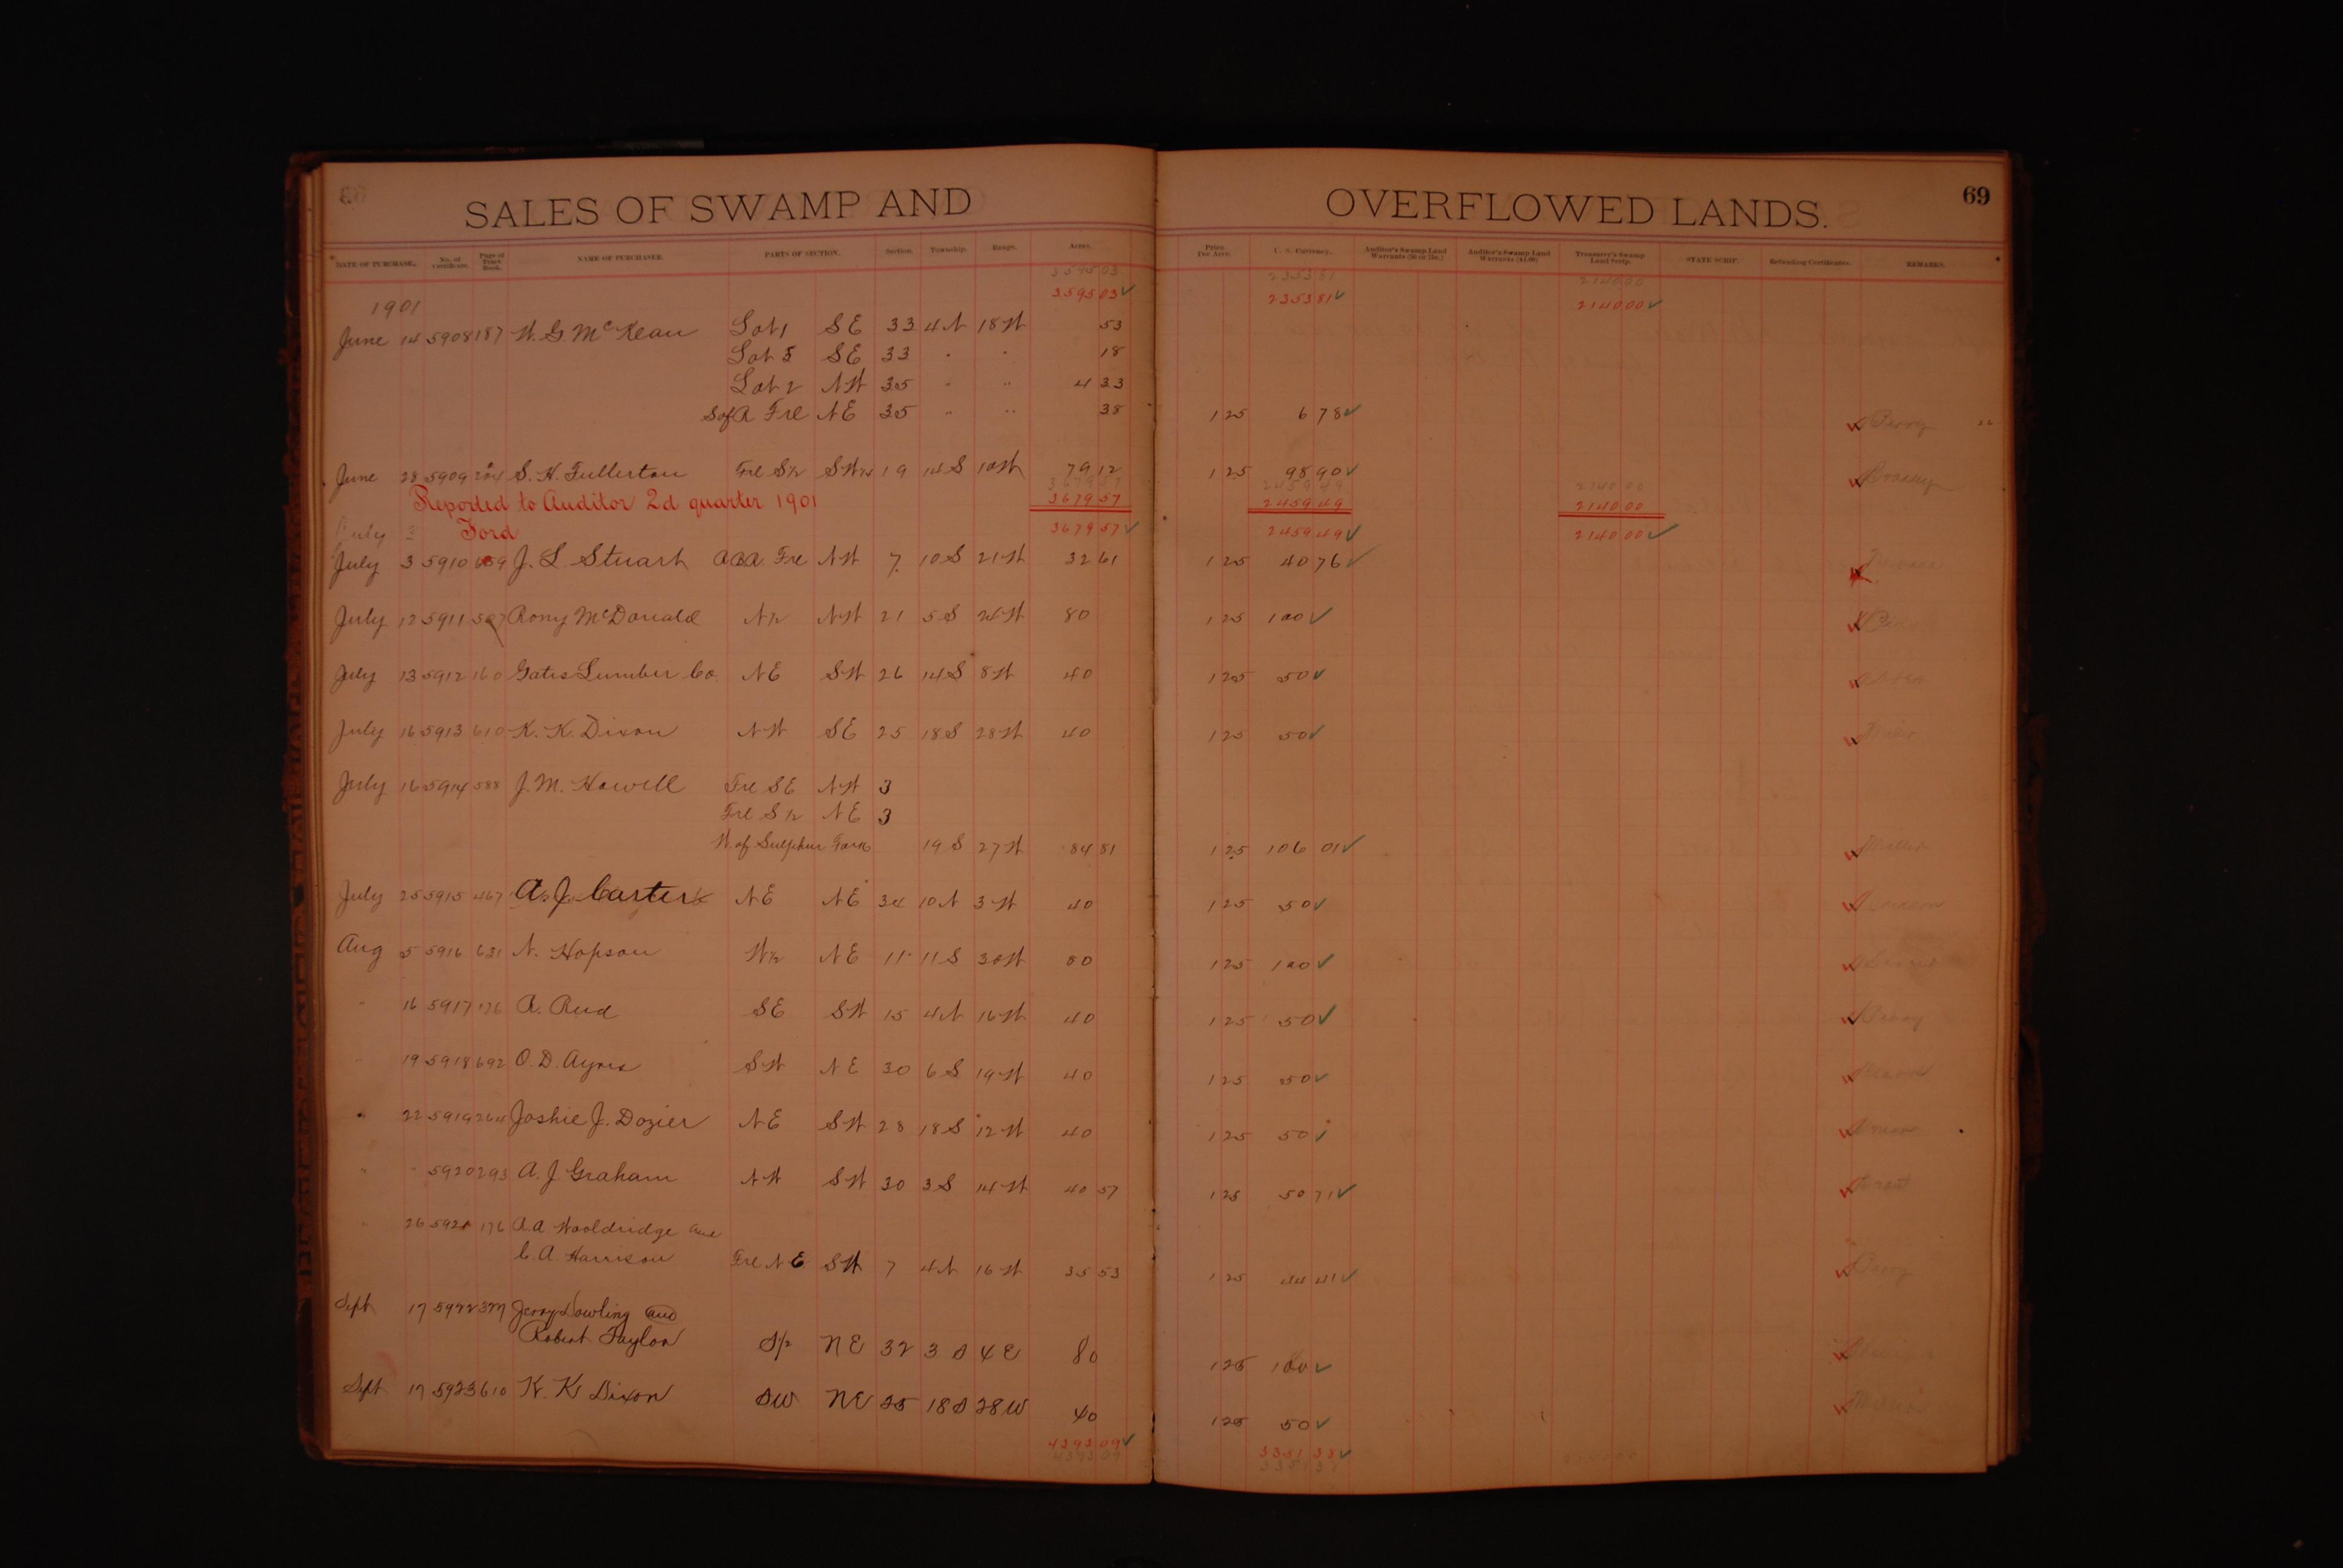 SALES OF SWAMP AND OVERFLOWED LANDS. 69
DATE OF PURCHASE. No. of Certificate. Page of Tract Book. NAME OF PURCHASER. PARTS OF SECTION. Section. Township. Range. Acres. Price Per Acre. U. S. Currency. Auditor's Swamp Land Warrants (50 or 75c.) Auditor's Swamp Land Warrants ($1.00) Treasurer's Swamp Land Scrip. STATE SCRIP. Refunding Certificates. REMARKS.
3595 03 2353 81 2140 00
1901 3595 03 ✓ 2353 81 ✓ 2140 00 ✓
June 14 5908 187 W. G. McKean Lot 1 SE 33 4N 18W 53
Lot 5 SE 33 " " 18
Lot 2 NW 35 " " 4 33
S of R Frl NE 35 " " 38 1 25 6 78 ✓ Perry
June 28 5909 S. H. Fullerton Frl S½ SW¼ 19 14S 10W 79 12 1 25 98 90 ✓ Bradley
3679 57 2459 49 2140 00
Reported to Auditor 2d quarter 1901 3679 57 2459 49 2140 00
July 3 Ford 3679 57 ✓ 2459 49 ✓ 2140 00 ✓
July 3 5910 659 J. L. Stuart Frl NW 7 10S 21W 32 61 1 25 40 76 ✓
July 12 5911 507 Rony McDonald N½ NW 21 5S 26W 80 1 25 100 ✓
July 13 5912 160 Gates Lumber Co. NE SW 26 14S 8W 40 1 25 50 ✓
July 16 5913 610 K. K. Dixon NW SE 25 18S 28W 40 1 25 50 ✓ Miller
July 16 5914 588 J. M. Howell Frl SE NW 3
Frl S½ NE 3
W. of Sulphur Fork 19S 27W 84 81 1 25 106 01 ✓ Miller
July 25 5915 467 A. J. Carter NE NE 34 10N 3W 40 1 25 50 ✓ Jackson
Aug 5 5916 631 N. Hopson W½ NE 11 11S 30W 80 1 25 100 ✓ Sevier
" 16 5917 176 A. Reed SE SW 15 4N 16W 40 1 25 50 ✓ Perry
" 19 5918 692 O. D. Ayres SW NE 30 6S 19W 40 1 25 50 ✓
" 22 5919 264 Joshie J. Dozier NE SW 28 18S 12W 40 1 25 50 ✓ Union
" " 5920 293 A. J. Graham NW SW 30 3S 14W 40 57 1 25 50 71 ✓ Grant
" 26 5921 176 A. A. Wooldridge and
C. A. Harrison Frl NE SW 7 4N 16W 35 53 1 25 44 41 ✓ Perry
Sept 17 5922 377 Jerry Dowling and
Robert Taylor S½ NE 32 3S 4E 80 1 25 100 ✓
Sept 17 5923 610 K. K. Dixon SW NE 25 18S 28W 40 1 25 50 ✓ Miller
4393 09 ✓ 3351 33 ✓
4393 09 3351 33